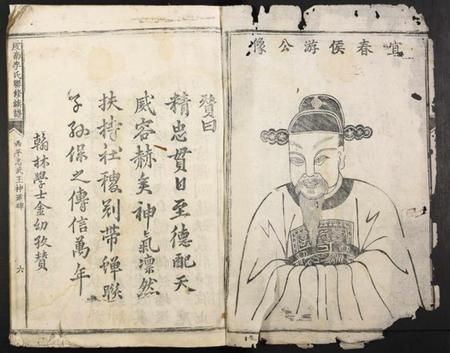 宜春侯游公像
贊曰
精忠貫日至德配天
威容赫矣神氣凛然
扶持社稷別帶蟬聯
子孫保之傳信萬年
翰林學士金幼孜贊
南李氏聯修族譜
西平忠武王神道碑
六